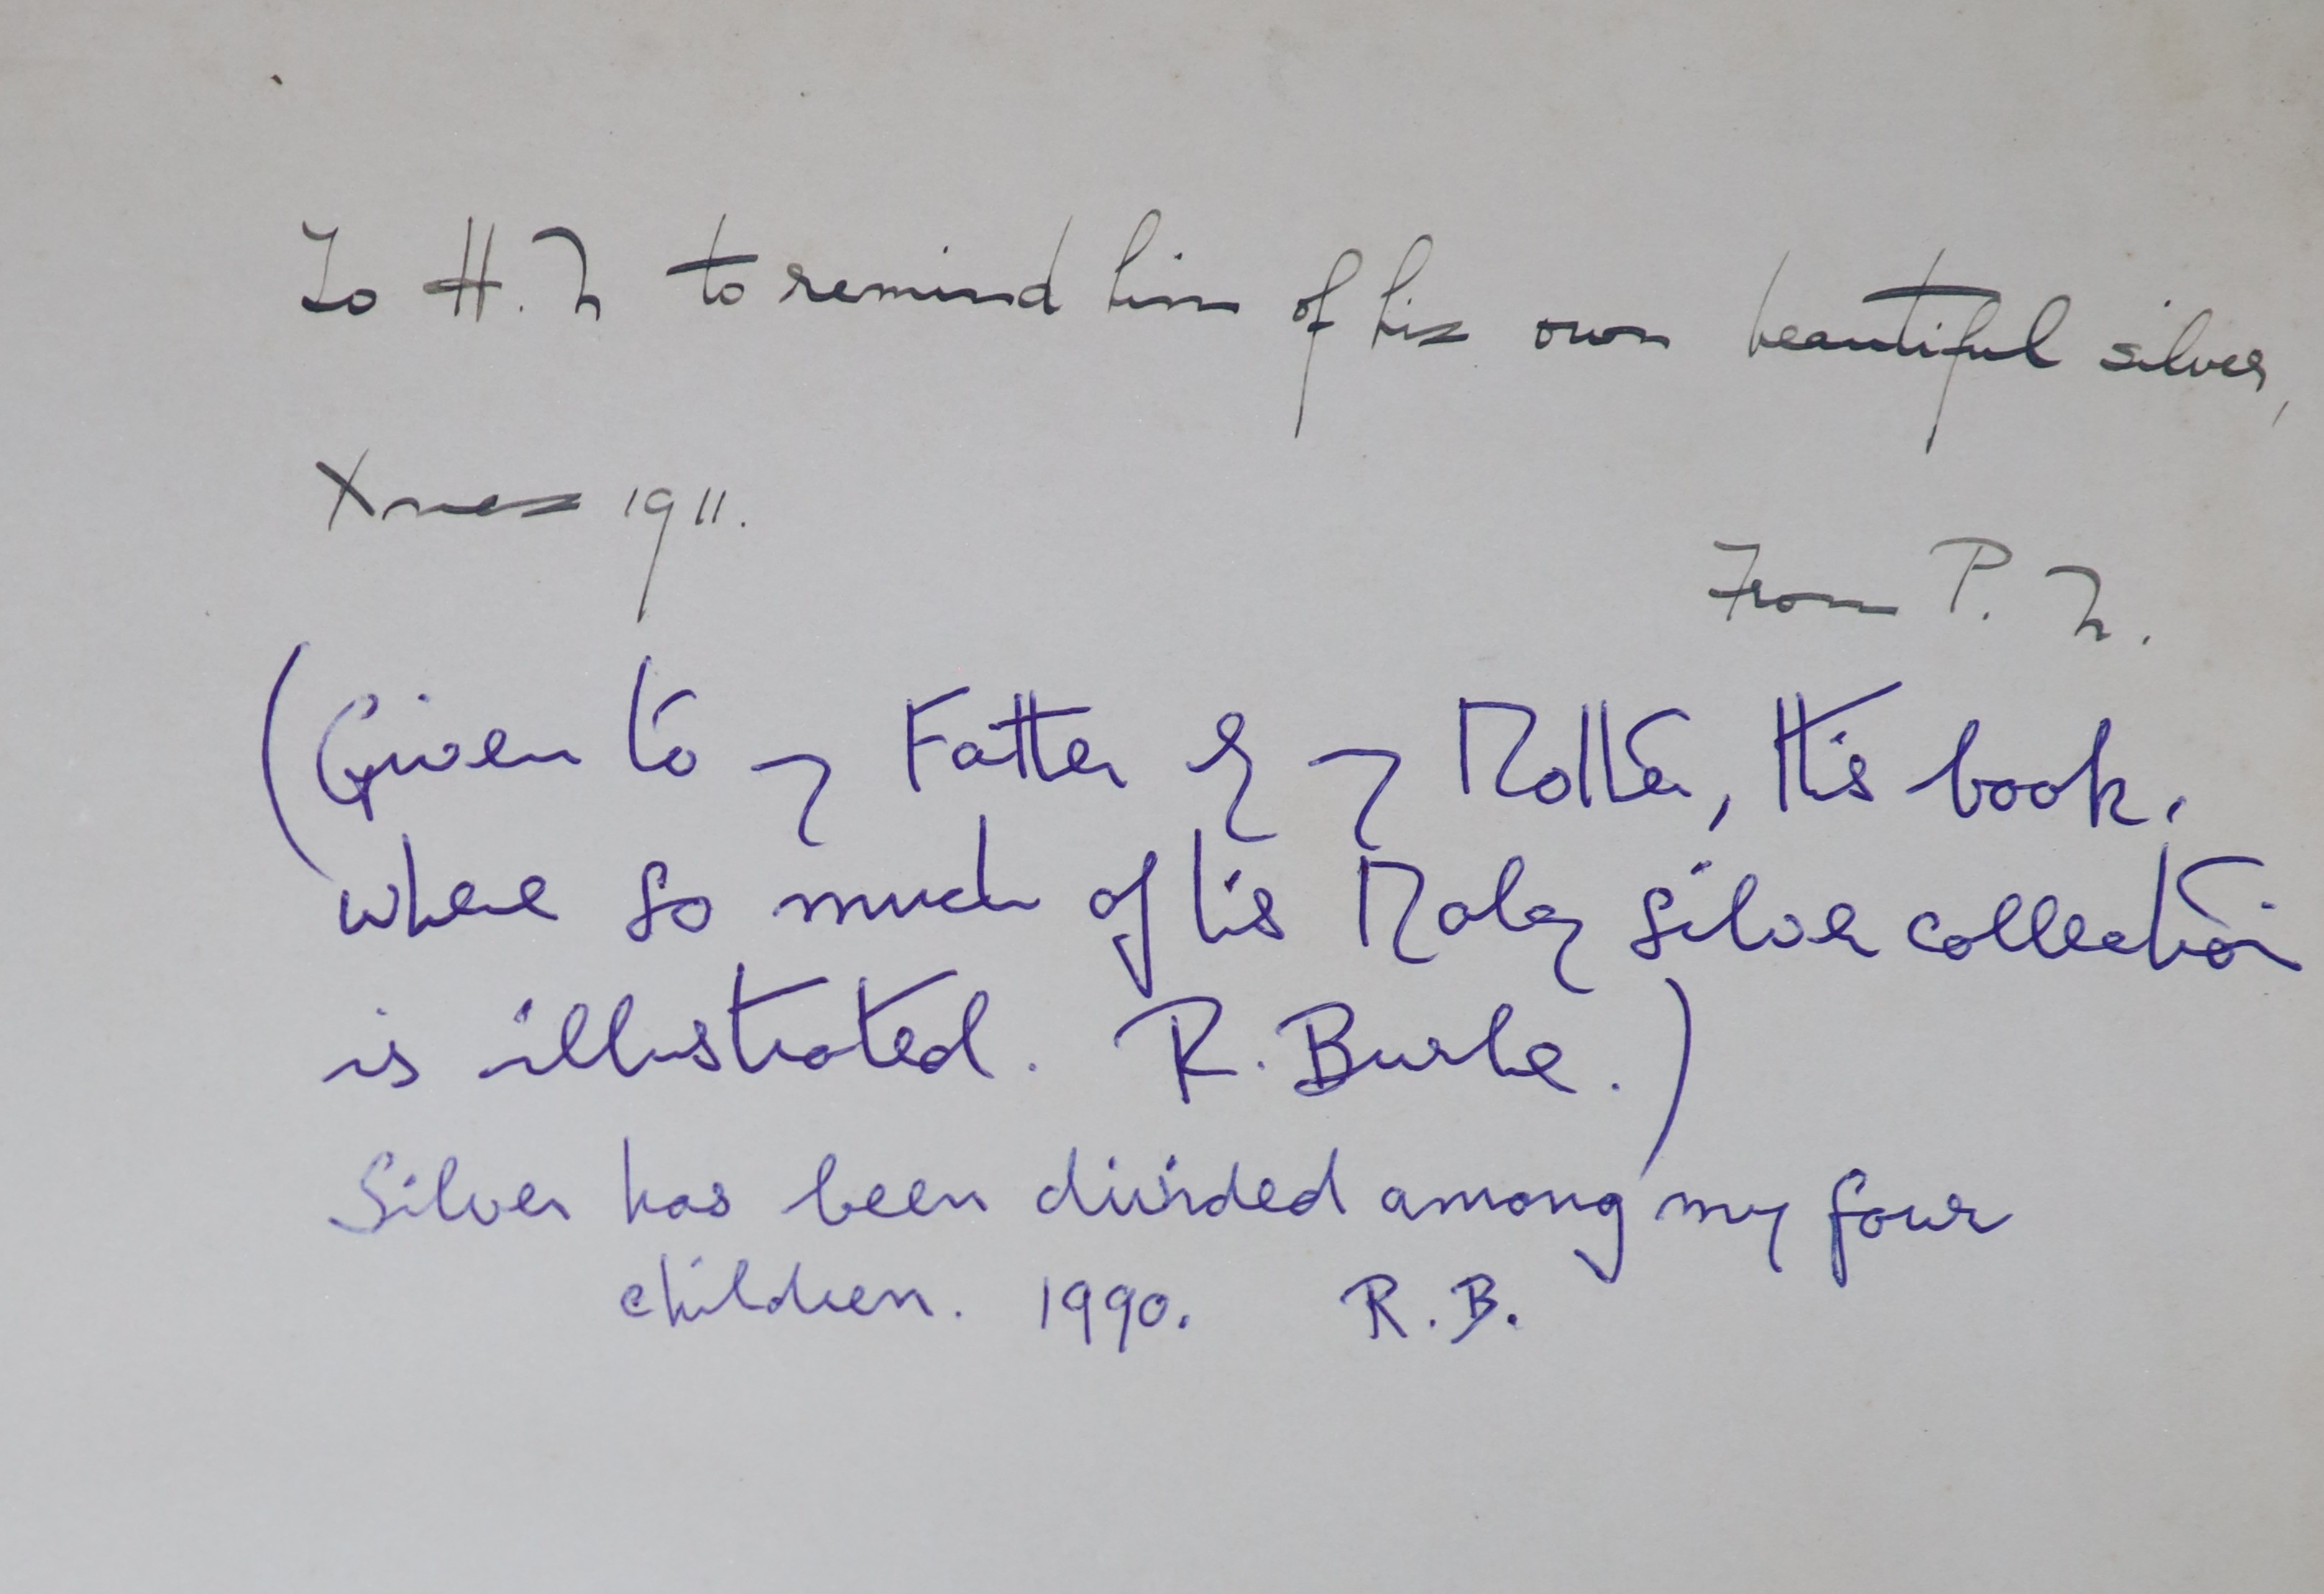 To H. N to remind him of his own beautiful silver,
Xmas 1911.
From P. N.
(Given to my Father by my Mother, this book,
where so much of his Malay silver collection
is illustrated. R. Burke.)
Silver has been divided among my four
children. 1990. R.B.